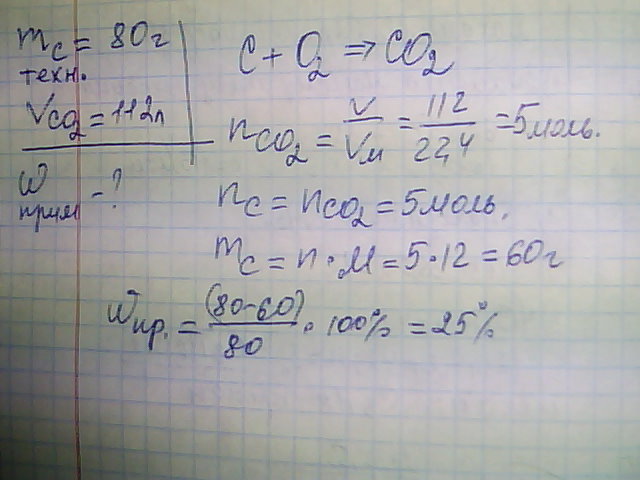 mc = 80г
техн.
Vco₂ = 112л
W прим - ?
C + O₂ ⇒ CO₂
nco₂ = V/Vм = 112/22,4 = 5моль.
nc = nco₂ = 5моль.
mc = n · M = 5 · 12 = 60г
Wпр. = (80-60)/80 · 100% = 25%